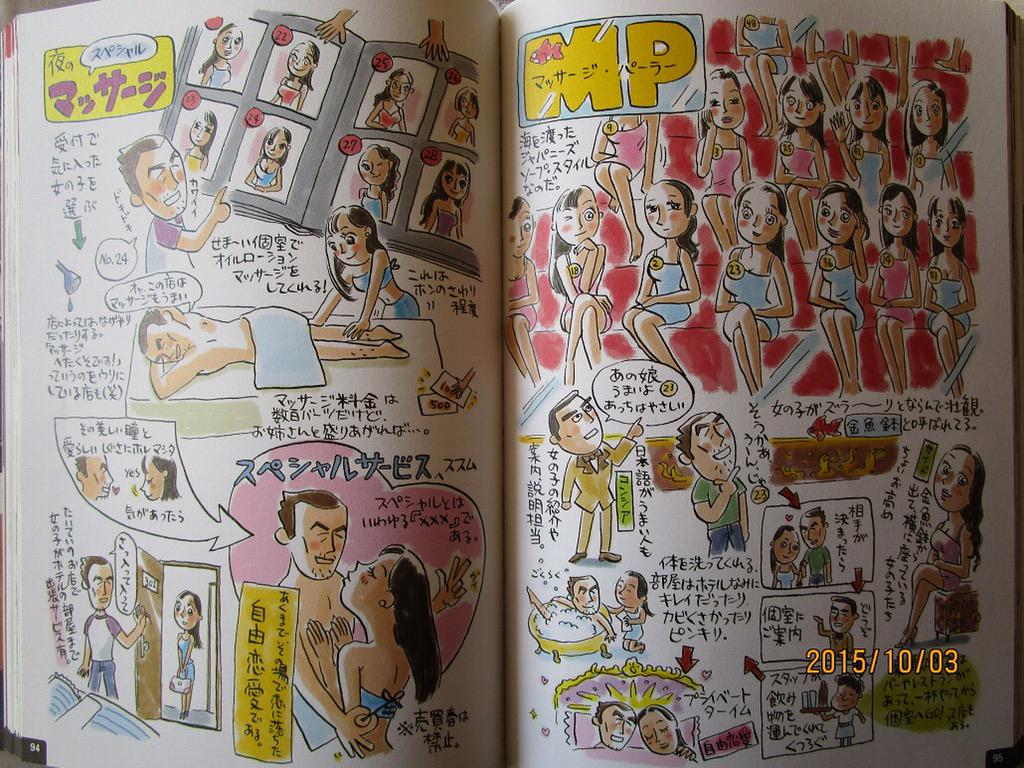 夜の
スペシャル
マッサージ
受付で
気に入った
女の子を
選ぶ
カワイイ
ドキドキ
No.24
22
25
26
23
24
27
28
せま〜い個室で
オイルローション
マッサージを
してくれる!
これは
ホンのさわり
程度
オッ、この店は
マッサージもうまい
店によってはなげやり
だったりする。
マッサージ
へたくそです!
っていうのをウリに
している店も(笑)
マッサージ料金は
数百バーツだけど
お姉さんと盛りあがれば…。
500
その美しい瞳と
愛らしいしぐさにホレマシタ
yes
気があったら
スペシャルサービス、ススム
スペシャルとは
いわゆる『×××』で
ある。
たいていのお店で
女の子がホテルの部屋まで
出張サービス有。
さっ入って入って
302
あくまでその場で恋に落ちた
自由恋愛である。
※売買春は
禁止。
94
MP
マッサージ・パーラー
海を渡った
ジャパニーズ
ソープ。スタイル
なのだ。
48
9
3
25
12
18
2
23
16
14
31
あの娘 23
うまいよ
あっちはやさしい
女の子がズラーーリとならんで壮観。
金魚鉢と呼ばれてる。
コンシア
日本語がうまい人も
女の子の紹介や
案内、説明担当。
そうかぁ
うーんじゃ
23
サイド
金魚鉢から
出て、横に座っている
女の子たち
ちょいお高め
相手が
決まったら
どうぞ
個室に
ご案内
ごくらく
体を洗ってくれる。
部屋はホテルなみに
キレイだったり
カビくさかったり
ピンキリ。
プライベート
ターイム
自由恋愛
スタッフが
飲み
物を
運んでくれて
くつろぐ
バーやレストランが
あって、一杯やってから
個室へGO!な店も
ある。
2015/10/03
95